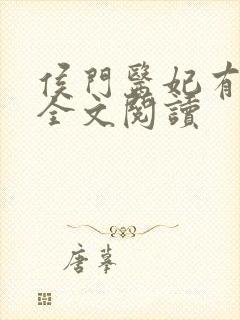 侯門醫妃有
全文閱讀
唐摹